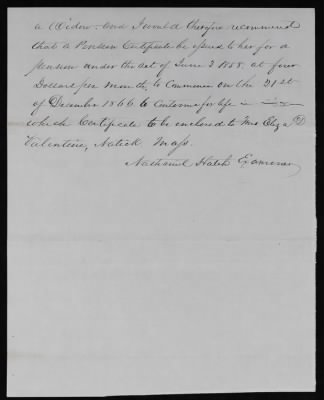 a Widow - and I would therefore recommend
that a Pension Certificate be issued to her for a
pension under the act of June 3 1858. at four
Dollars per month, to Commence on the 21st
of December 1866 to continue for life
which Certificate to be enclosed to Mrs Eliza D
Valentine, Natick. Mass.
Nathaniel Hatch Examiner